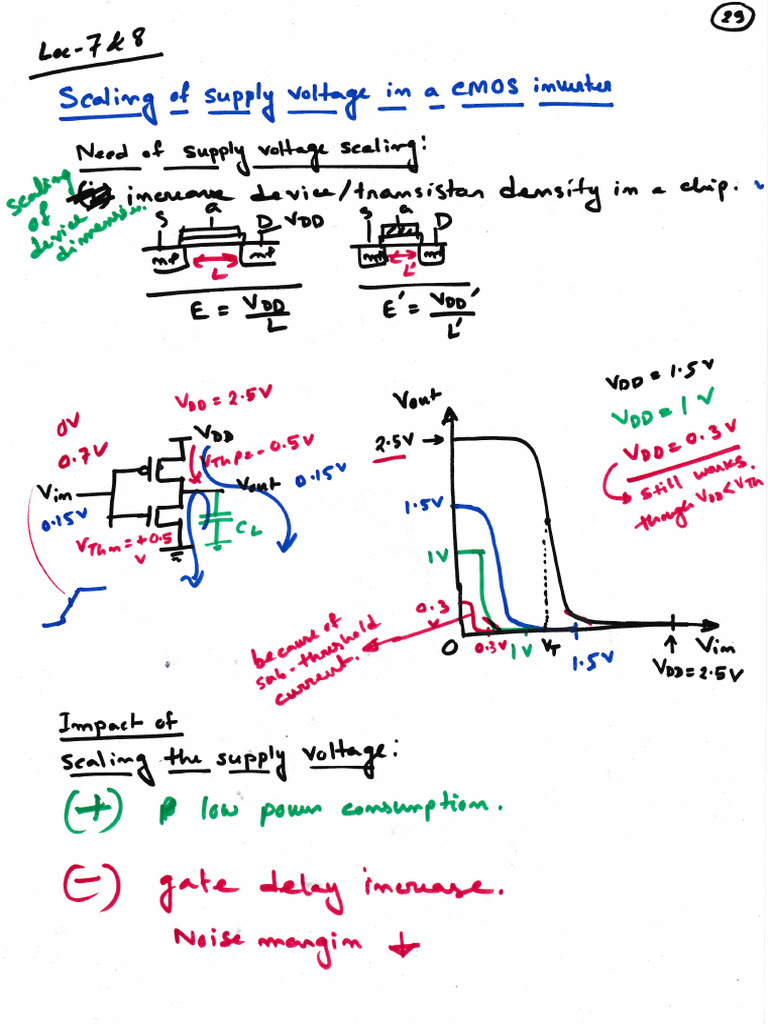 29
Lec-7&8
Scaling of supply voltage in a CMOS inverter
Need of supply voltage scaling:
increase device/transistor density in a chip.
scaling
of
device
dimension.
S G D VDD
n+ L n+
E = VDD/L
S G D
n+ L' n+
E' = VDD'/L'
VDD = 2.5V
0V
0.7V
Vin
0.15V
VDD
VThp = -0.5V
Vout 0.15V
CL
VThn = +0.5
V
Vout
2.5V
1.5V
1V
0.3
V
0
0.3V
1V
VT
1.5V
VDD = 2.5V
Vin
VDD = 1.5V
VDD = 1V
VDD = 0.3V
still works
though VDD < VTh
because of
sub-threshold
current.
Impact of
scaling the supply voltage:
(+) low power consumption.
(-) gate delay increase.
Noise margin ↓